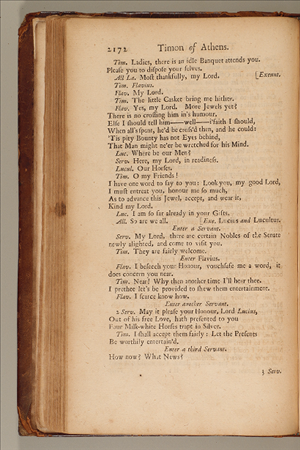 2172 Timon of Athens.
Tim. Ladies, there is an idle Banquet attends you.
Please you to dispose your selves.
All La. Most thankfully, my Lord. [Exeunt.
Tim. Flavius.
Flav. My Lord.
Tim. The little Casket bring me hither.
Flav. Yes, my Lord. More Jewels yet?
There is no crossing him in's humour,
Else I should tell him——well——i'faith I should,
When all's spent, he'd be cross'd then, and he could:
'Tis pity Bounty has not Eyes behind,
That Man might ne'er be wretched for his Mind.
Luc. Where be our Men?
Serv. Here, my Lord, in readiness.
Lucul. Our Horses.
Tim. O my Friends!
I have one word to say to you: Look you, my good Lord,
I must entreat you, honour me so much,
As to advance this Jewel, accept, and wear it,
Kind my Lord.
Luc. I am so far already in your Gifts.
All. So are we all. [Exe. Lucius and Lucullus.
Enter a Servant.
Serv. My Lord, there are certain Nobles of the Senate
newly alighted, and come to visit you.
Tim. They are fairly welcome.
Enter Flavius.
Flav. I beseech your Honour, vouchsafe me a word, it
does concern you near.
Tim. Near? Why then another time I'll hear thee.
I prethee let's be provided to shew them entertainment.
Flav. I scarce know how.
Enter another Servant.
2 Serv. May it please your Honour, Lord Lucius,
Out of his free Love, hath presented to you
Four Milk-white Horses trapt in Silver.
Tim. I shall accept them fairly: Let the Presents
Be worthily entertain'd.
Enter a third Servant.
How now? What News?
3 Serv.